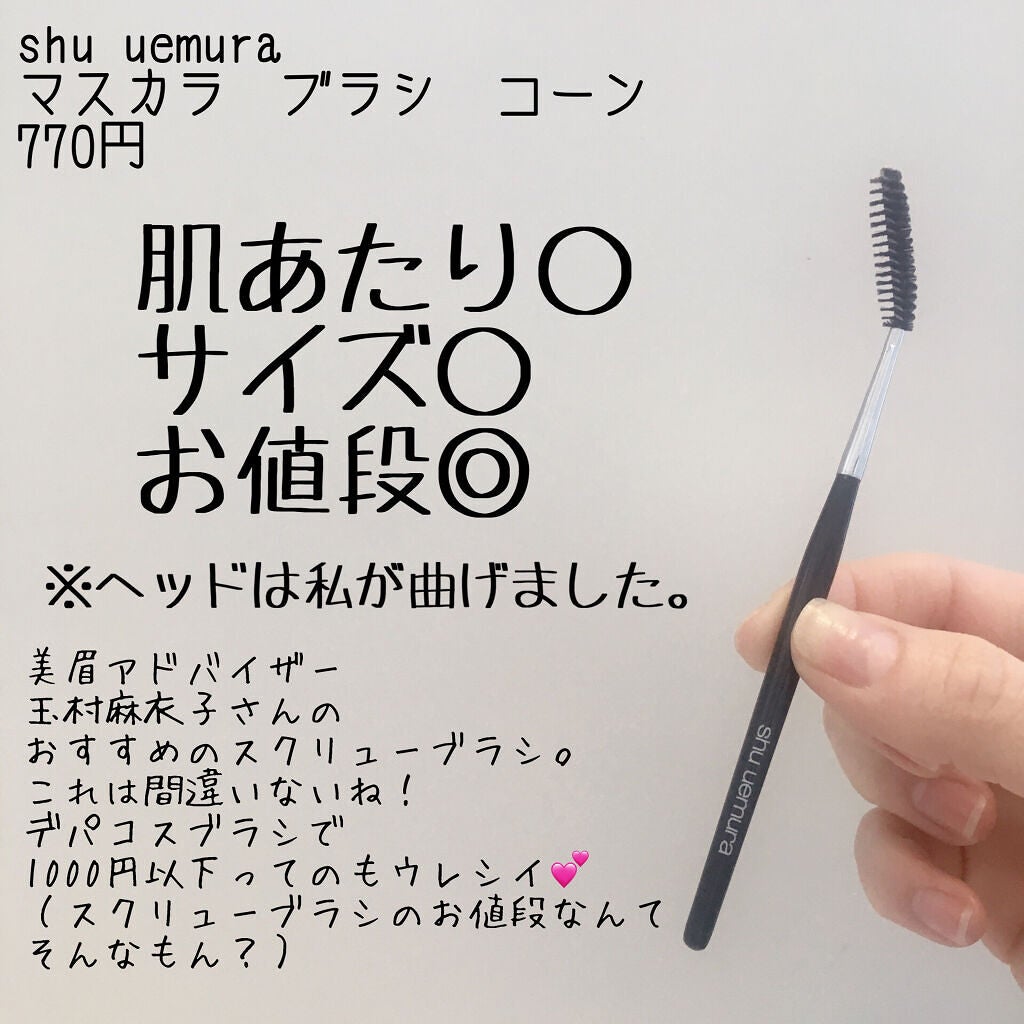 shu uemura
マスカラ　ブラシ　コーン
770円
肌あたり○
サイズ○
お値段◎
※ヘッドは私が曲げました。
美眉アドバイザー
玉村麻衣子さんの
おすすめのスクリューブラシ。
これは間違いないね！
デパコスブラシで
1000円以下ってのもウレシイ💕
（スクリューブラシのお値段なんて
そんなもん？）
shu uemura